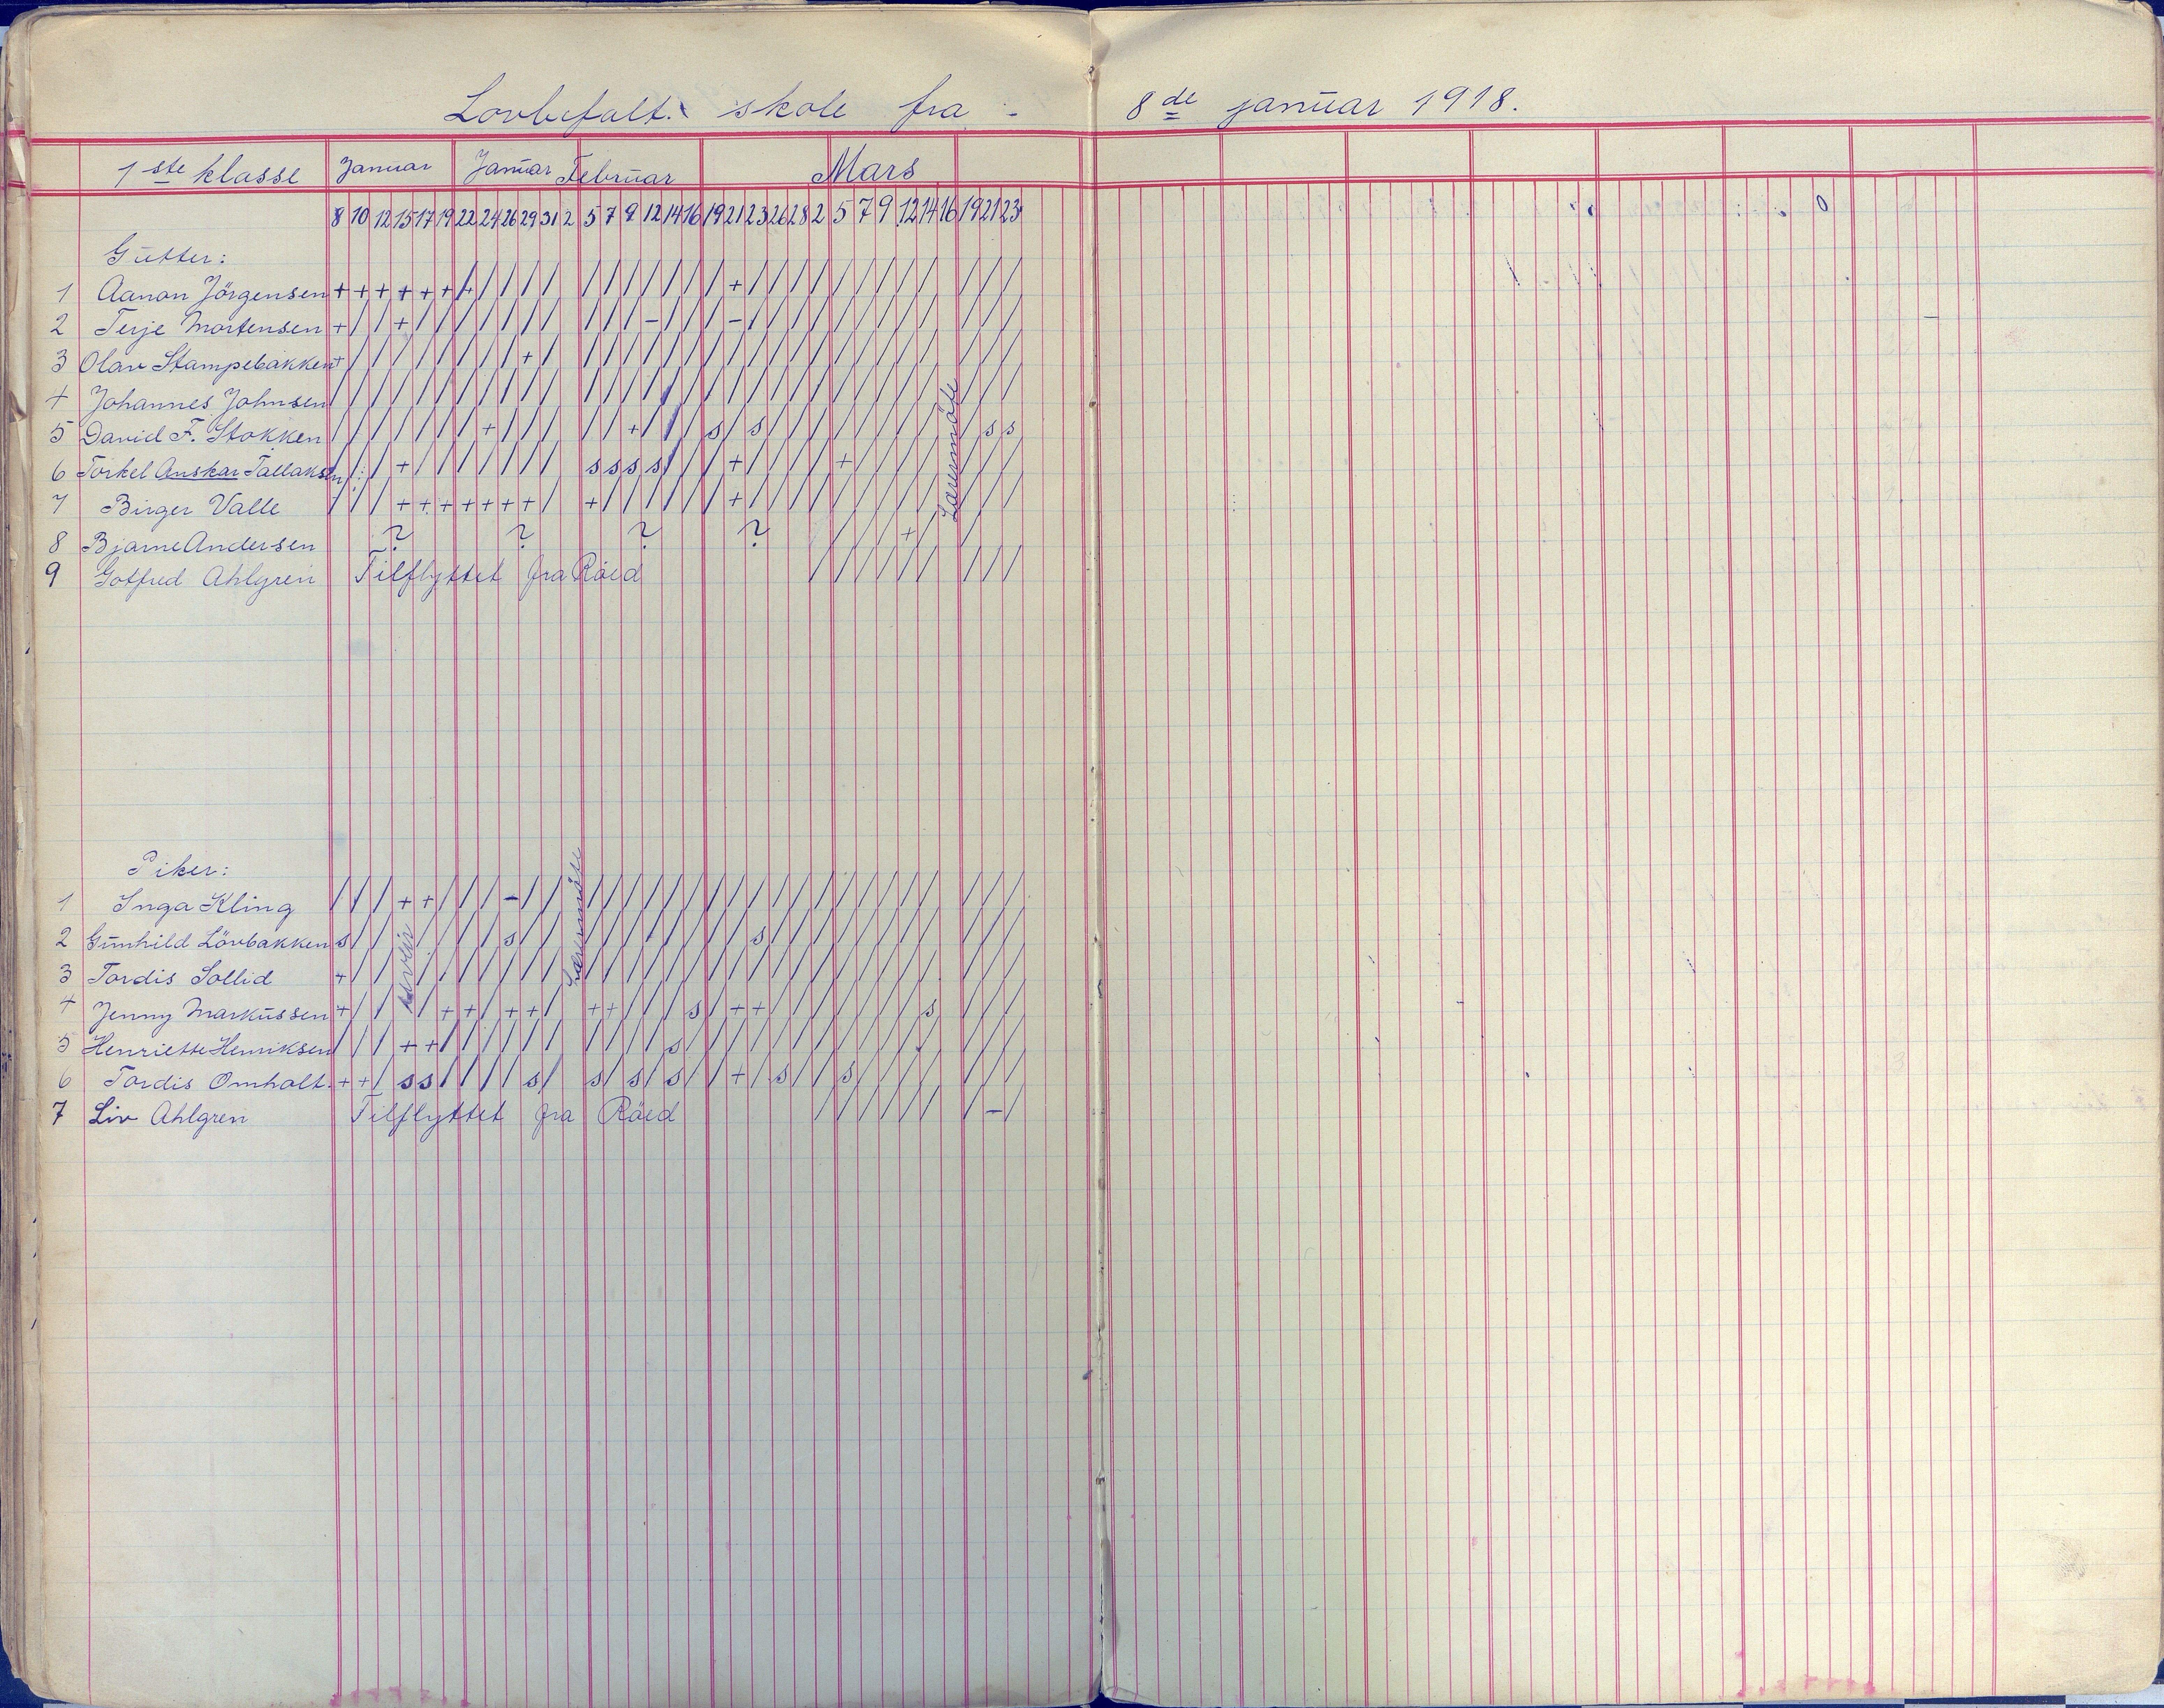 Lovbefalt. skole fra - 8de januar 1918.
1ste klasse Januar Januar Februar Mars
8 10 12 15 17 19 22 24 26 29 31 2 5 7 9 12 14 16 19 21 23 26 28 2 5 7 9 12 14 16 19 21 23
Gutter:
1 Aanon Jörgensen + + + + + + + / / / / / / / / / / / + / / / / / / / / / / / /
2 Terje Mortensen + / / + / / / / / / / / / / - / / / - / / / / / / / / / / / /
3 Olav Stampebakken + / / / / / / / / + / / / / / / / / / / / / / / / / / / / / /
4 Johannes Johnsen / / / / / / / / / / / / / / / / / / / / / / / / / / / / / / /
5 David F. Stokken / / / / / / / + / / / / / + / / / s / s / / / / / / / / / s s
6 Torkel Anskar Tallaksen / / / + / / / / / / / s s s s / / / + / / / / + / / / / / / /
7 Birger Valle / / / + + + + + + + / + / / / / / / + / / / / / / / / / / / /
8 Bjarne Andersen ? ? ? ? / / / + / /
9 Gotfred Ahlgren Tilflyttet fra Röed / / / / / / / / /
Lærermöte
Piker:
1 Inga Kling / / / + + / / / - / / / / / / / / / / / / / / / / / / / / / /
2 Gunhild Lövbakken s / / / / / / / s / / / / / / / / / / s / / / / / / / / / / /
3 Tordis Sollid + / / / / / / / / / / / / / / / / / / / / / / / / / / / / /
4 Jenny Markussen + / / / + + / + + / + + / / / s / + + / / / / / / / s / / /
5 Henriette Henriksen / / / + + / / / / / / / / / / s / / / / / / / / / / / / / / /
6 Tordis Omholt. + + / s s / / / / s / s / s / s / / + / s / / s / / / / / / /
7 Liv Ahlgren Tilflyttet fra Röed / / / / / / / - /
uveir
Lærermöte